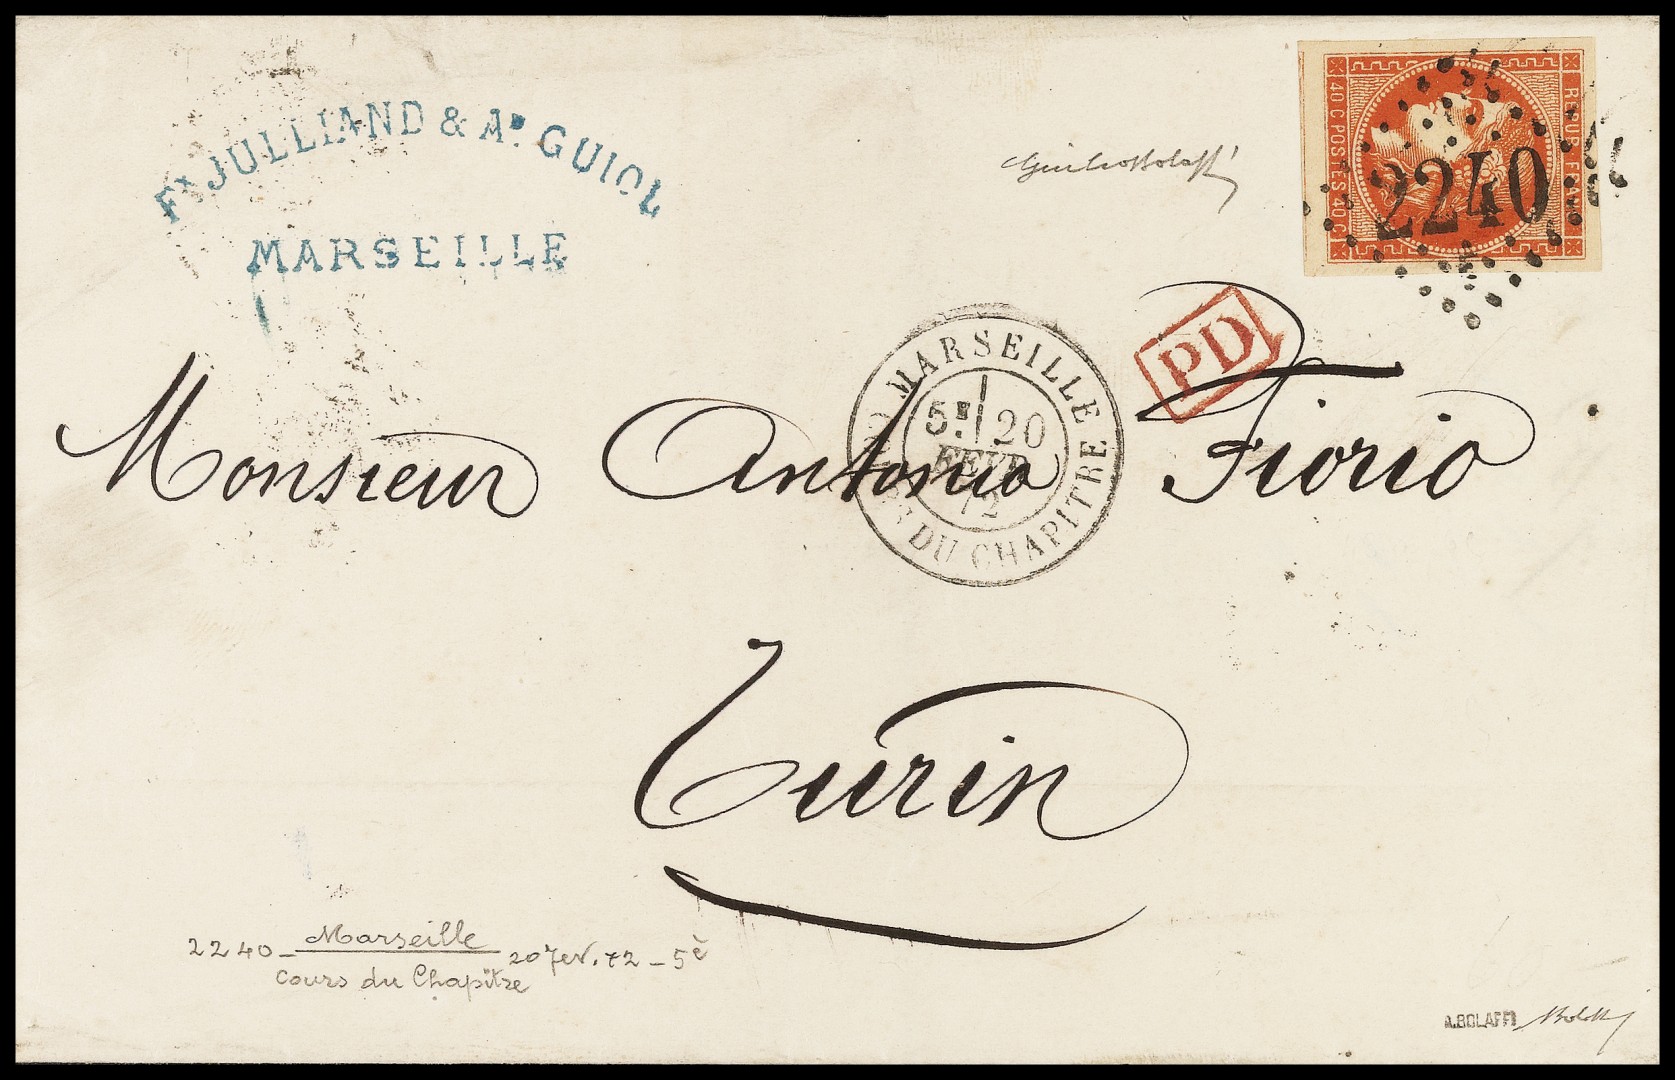 Fx JULLIAND & Ad GUIOL
MARSEILLE
40 C POSTES 40 C
REPUB FRANC
2240
PD
MARSEILLE
5E 20
FEVR
72
DU CHAPITRE
Monsieur Antonio Fiorio
Turin
2240 - Marseille 20 fev. 72 - 5è
Cours du Chapître
A.BOLAFFI